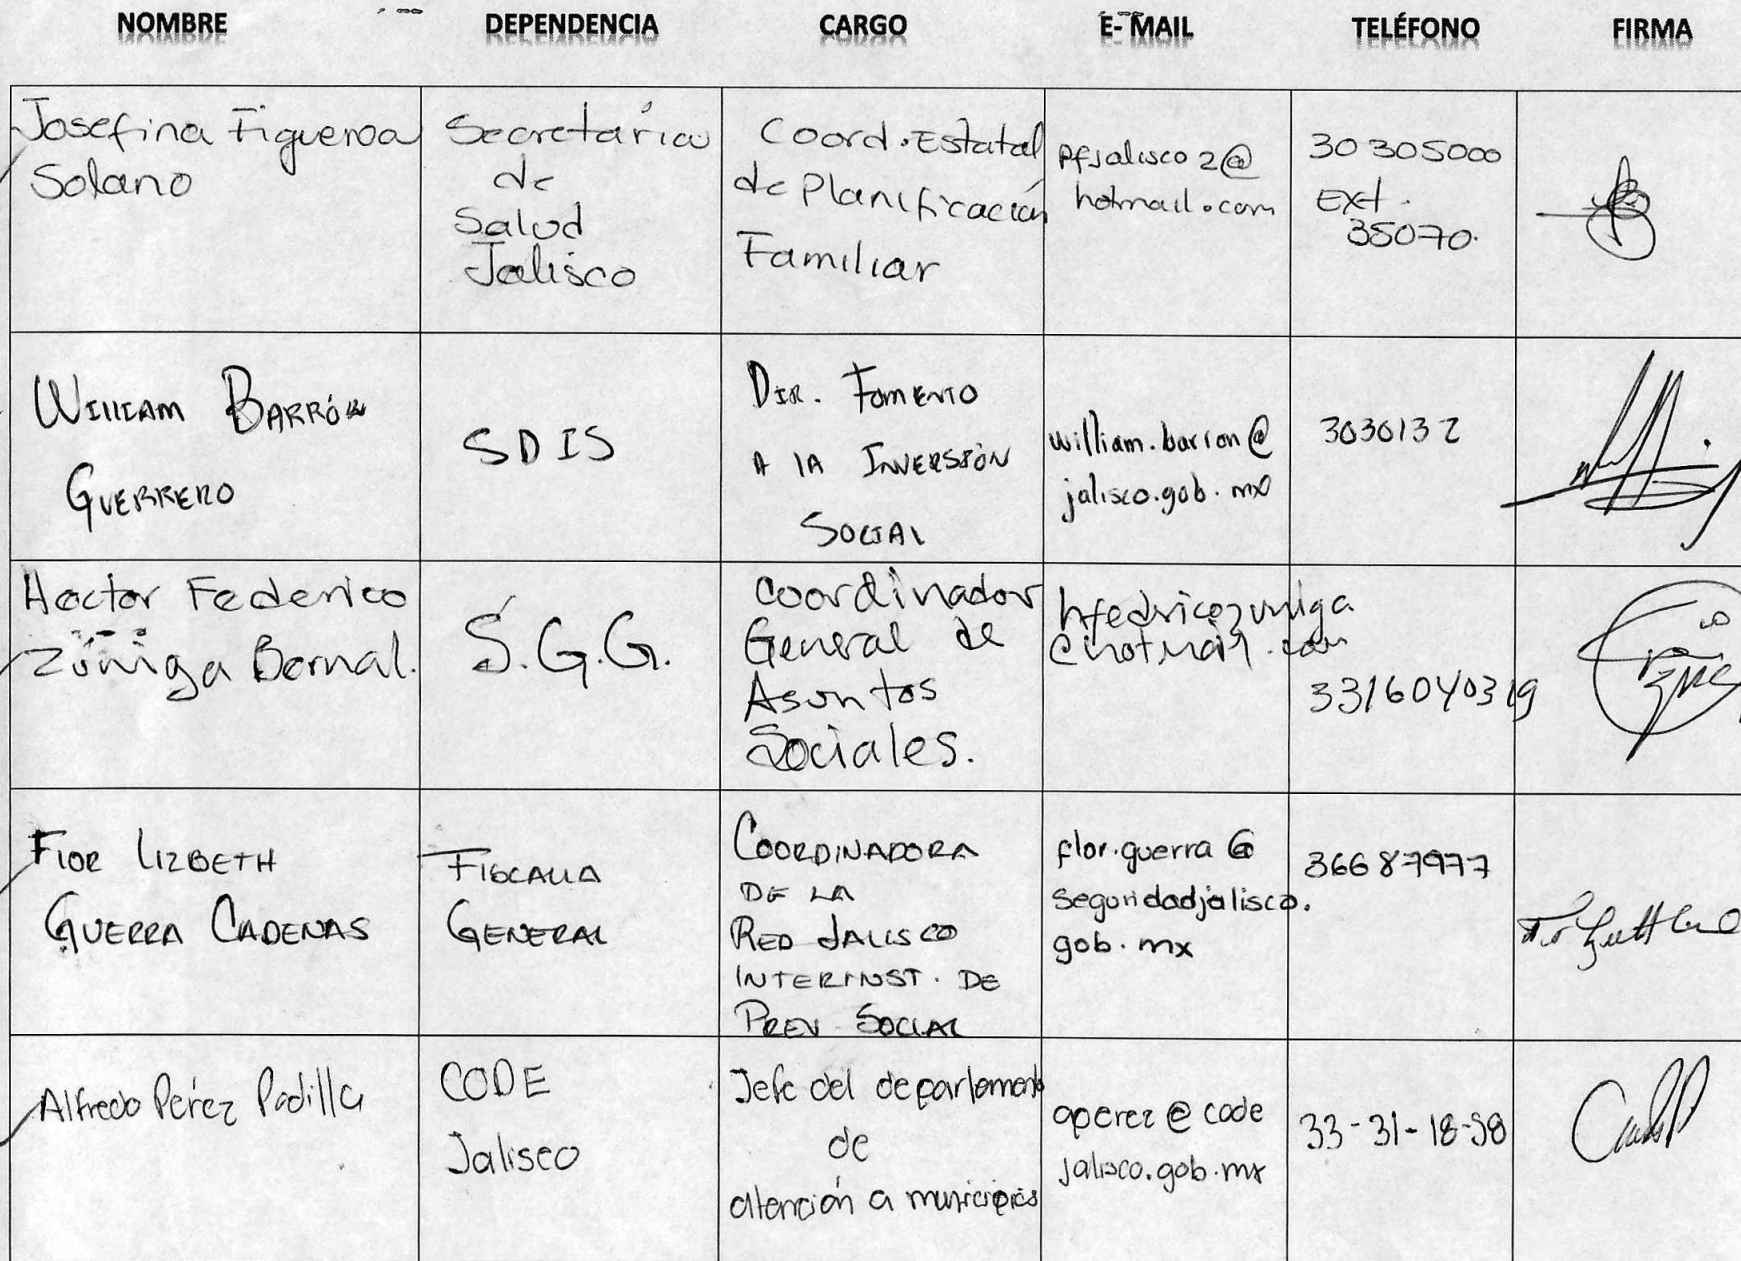 NOMBRE DEPENDENCIA CARGO E-MAIL TELÉFONO FIRMA
Josefina Figueroa
Solano
Secretaría
de
Salud
Jalisco
Coord. Estatal
de Planificación
Familiar
pfjalisco2@
hotmail.com
30305000
Ext.
35070.
William Barrón
Guerrero
SDIS
Dir. Fomento
a la Inversión
Social
william.barron@
jalisco.gob.mx
3030132
Hector Federico
Zúñiga Bernal.
S.G.G.
Coordinador
General de
Asuntos
Sociales.
hfedricozuniga
@hotmail.com
3316040319
Flor Lizbeth
Guerra Cadenas
Fiscalia
General
Coordinadora
de la
Red Jalisco
Interinst. de
Prev. Social
flor.guerra@
seguridadjalisco.
gob.mx
36687977
Alfredo Pérez Padilla
CODE
Jalisco
Jefe del departamento
de
atención a municipios
aperez@code
jalisco.gob.mx
33-31-18-58